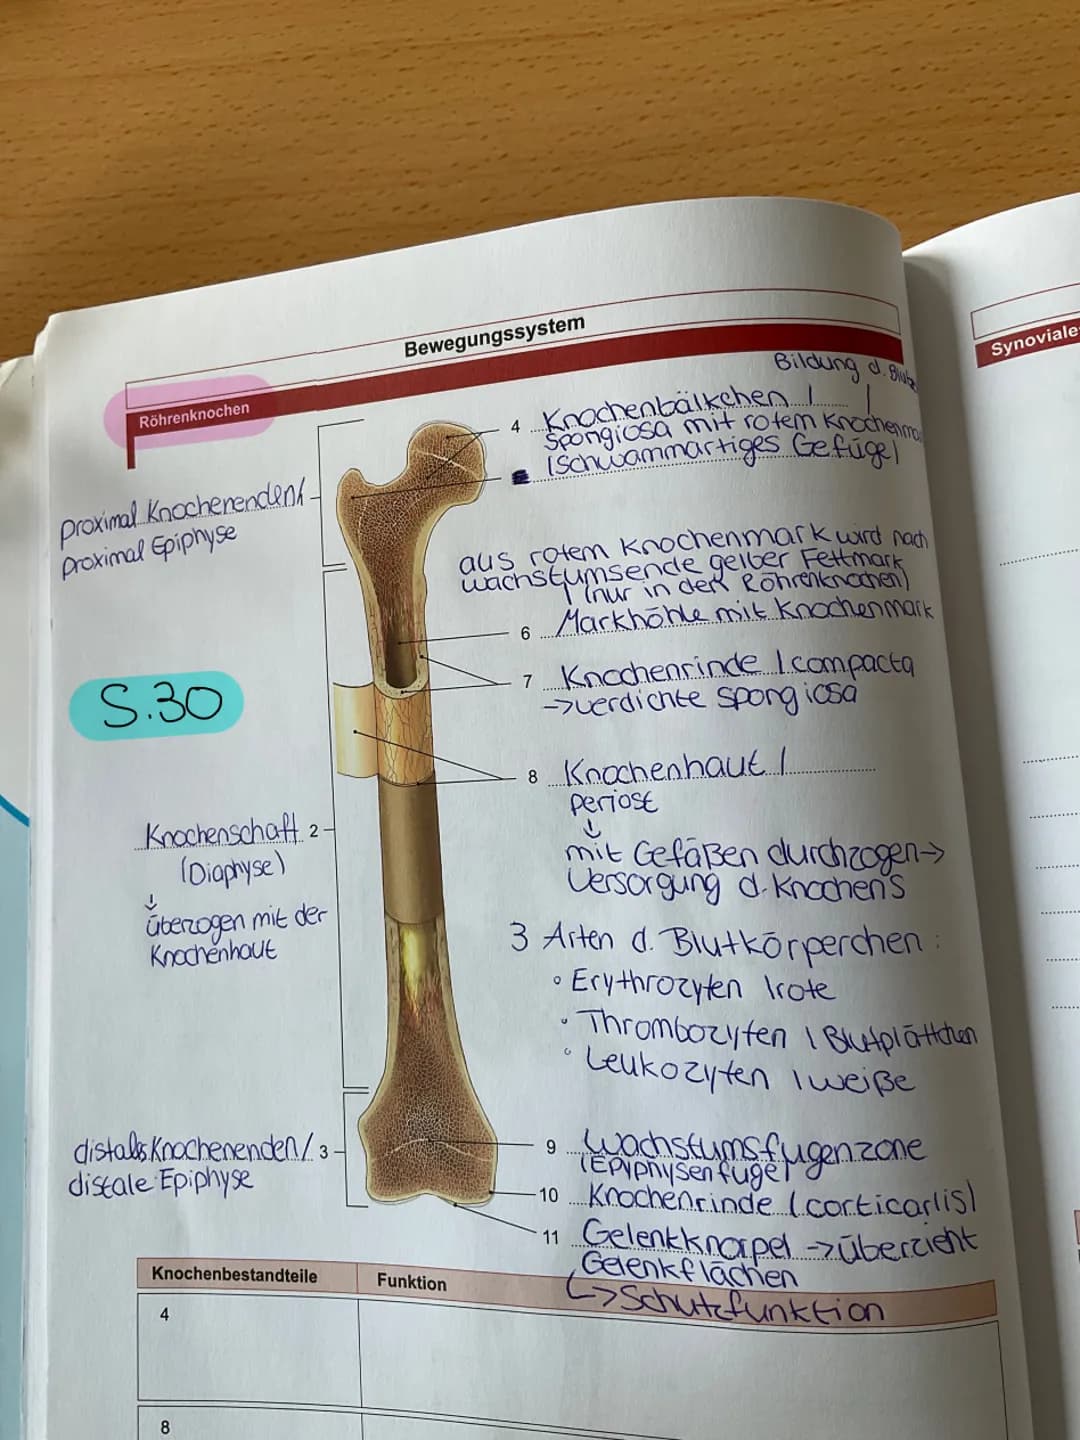 Bewegungssystem
Synoviale
Röhrenknochen
Bildung d. Blutes
4 Knochenbälkchen /
spongiosa mit rotem Knochenma
(Schwammartiges Gefüge)
proximal Knochenenden/
proximal Epiphyse
aus rotem Knochenmark wird nach
wachstumsende gelber Fettmark
(nur in den Röhrenknochen)
6 Markhöhle mit Knochenmark
7 Knochenrinde / compacta
→ verdichte spongiosa
S.30
8 Knochenhaut /
periost
↓
mit Gefäßen durchzogen →
Versorgung d. Knochens
Knochenschaft 2
(Diaphyse)
↓
überzogen mit der
Knochenhaut
3 Arten d. Blutkörperchen :
• Erythrozyten / rote
• Thrombozyten / Blutplättchen
• Leukozyten / weiße
distales Knochenenden/ 3
distale Epiphyse
9 Wachstumsfugenzone
(Epyphysenfuge)
10 Knochenrinde (corticarlis)
11 Gelenkknorpel → überzieht
Gelenkflächen
↳ Schutzfunktion
Knochenbestandteile Funktion
4
8